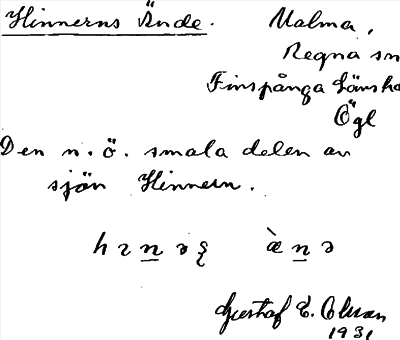 Hinnerns Ände. Malma,
Regna sn
Finspånga Länsha
Ögl
Den n.ö. smala delen av
sjön Hinnern.
Gustaf E.
1931